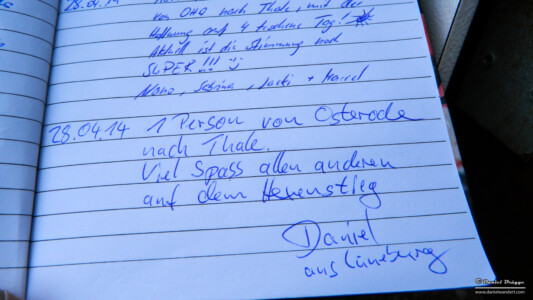 28.04.14
von OHA nach Thale, mit der
Hoffnung auf 4 trockene Tage!
Aktuell ist die Stimmung noch
SUPER!!!
Sabrina, + Marcel
28.04.14 1 Person von Osterode
nach Thale.
Viel Spass allen anderen
auf dem Hexenstieg
Daniel
aus Lüneburg
www.danielwandert.com